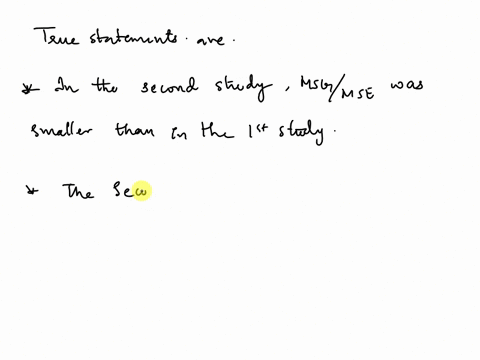 True statements are.
* In the second study, MSG/MSE was
smaller than in the 1st study.
* The Sec